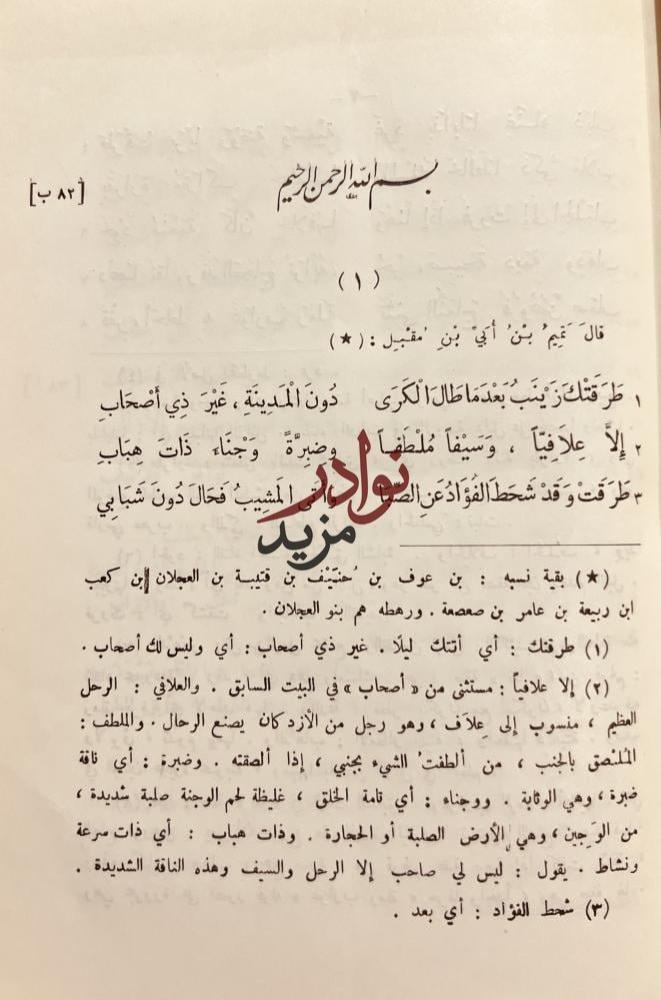 بسم الله الرحمن الرحيم
[٨٢ ب]
(١)
قالَ تَمِيمُ بْنُ أُبَيِّ بْنِ مُقْبِل : (★)
١ طَرَقَتْكَ زَيْنَبُ بَعْدَمَا طَالَ الْكَرَى دُونَ الْمَدِينَةِ ، غَيْرَ ذِي أَصْحَابِ
٢ إِلاَّ عِلاَفِيّاً ، وَسَيْفاً مُلْطَفاً وضِبِرَّةً وَجْنَاءَ ذَاتَ هِبَابِ
٣ طَرَقَتْ وَقَدْ شَحَطَ الفُؤَادُ عَنِ الصِّبَا وَأَتَى المَشِيبُ فَحَالَ دُونَ شَبَابِي
نوادر
مزيد
(★) بقية نسبه : بن عوف بن حُنَيْف بن قتيبة بن العجلان بن كعب
ابن ربيعة بن عامر بن صعصعة . ورهطه هم بنو العجلان .
(١) طرقتك : أي أتتك ليلًا . غير ذي أصحاب : أي وليس لك أصحاب .
(٢) إلا علافياً : مستثنى من « أصحاب » في البيت السابق . والعلافي : الرحل
العظيم ، منسوب إلى عِلاَف ، وهو رجل من الأزد كان يصنع الرحال . والملطف :
الملْتصق بالجنب ، من ألطفتُ الشيء بجنبي ، إذا ألصقته . وضبرة : أي ناقة
ضبرة ، وهي الوثابة . ووجناء : أي تامة الخلق ، غليظة لحم الوجنة صلبة شديدة ،
من الوَجين ، وهي الأرض الصلبة أو الحجارة . وذات هباب : أي ذات سرعة
ونشاط . يقول : ليس لي صاحب إلا الرحل والسيف وهذه الناقة الشديدة .
(٣) شحط الفؤاد : أي بعد .